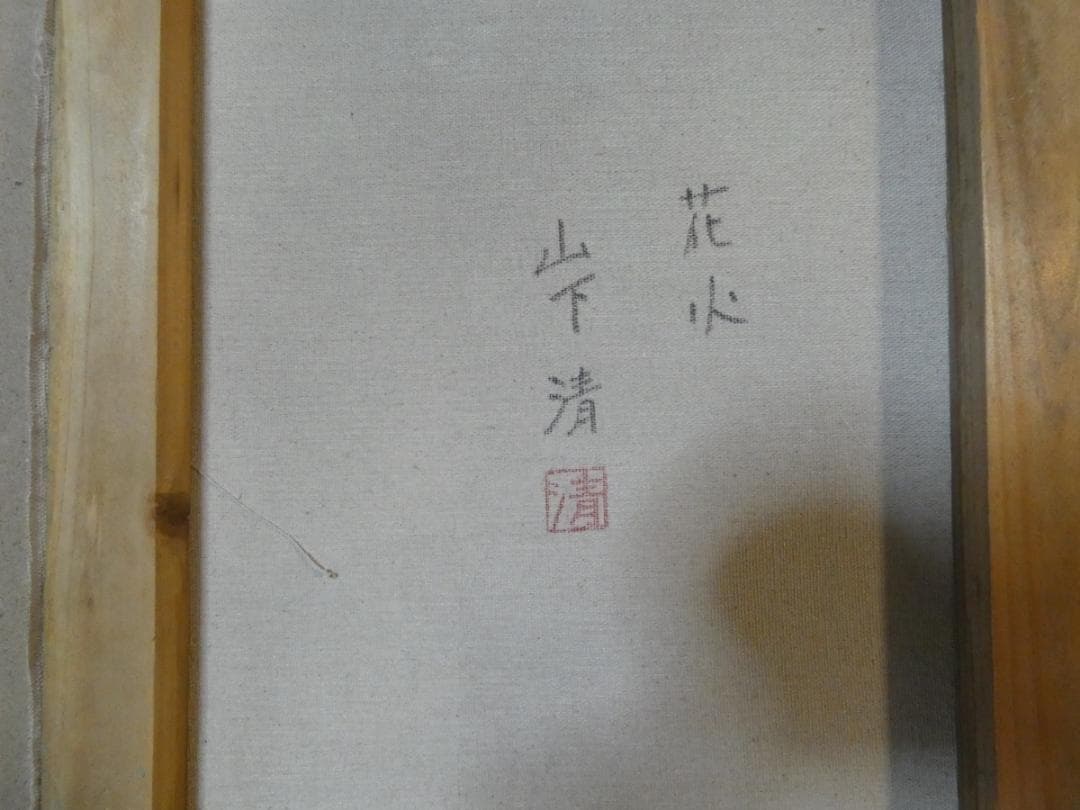 花火
山下清
清